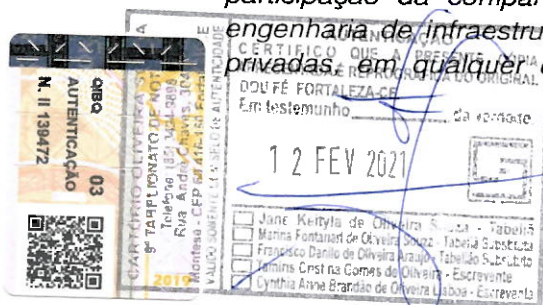 participação da compar
engenharia de infraestru
privadas, em qualquer
CERTIFICO QUE A PRESENTE CÓPIA
REPROGRÁFICA DO ORIGINAL
DOU FÉ FORTALEZA-CE
Em testemunho da verdade
12 FEV 2021
Jane Keityla de Oliveira Souza - Tabeliã
Marina Fontanari de Oliveira Souza - Tabeliã Substituta
Francisco Danilo de Oliveira Araujo - Tabelião Substituto
Cristina Gomes de Oliveira - Escrevente
Cynthia Anne Brandão de Oliveira Lisboa - Escrevente
CARTÓRIO OLIVEIRA
9º TABELIONATO DE NOT
Telefone
Rua André Chaves,
Montese - CEP
VÁLIDO SOMENTE SELO DE AUTENTICIDADE
QIBQ 03
AUTENTICAÇÃO
N. II 139472
2019